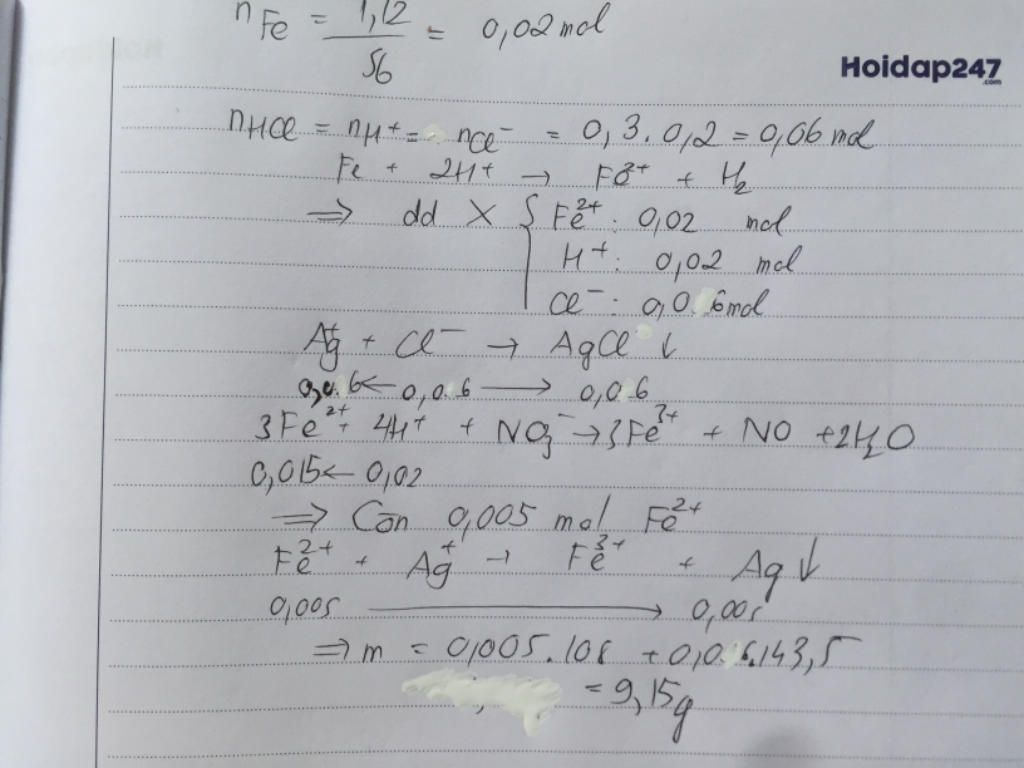 n Fe = 1,12/56 = 0,02 mol
Hoidap247
.com
nHCl = nH+ = nCl- = 0,3.0,2 = 0,06 mol
Fe + 2H+ → Fe2+ + H2
=> dd X { Fe2+ : 0,02 mol
H+ : 0,02 mol
Cl- : 0,06 mol
Ag+ + Cl- → AgCl ↓
0,06 ← 0,06 → 0,06
3Fe2+ + 4H+ + NO3- → 3Fe3+ + NO + 2H2O
0,015 ← 0,02
=> Còn 0,005 mol Fe2+
Fe2+ + Ag+ → Fe3+ + Ag ↓
0,005 → 0,005
=> m = 0,005.108 + 0,06.143,5
= 9,15g